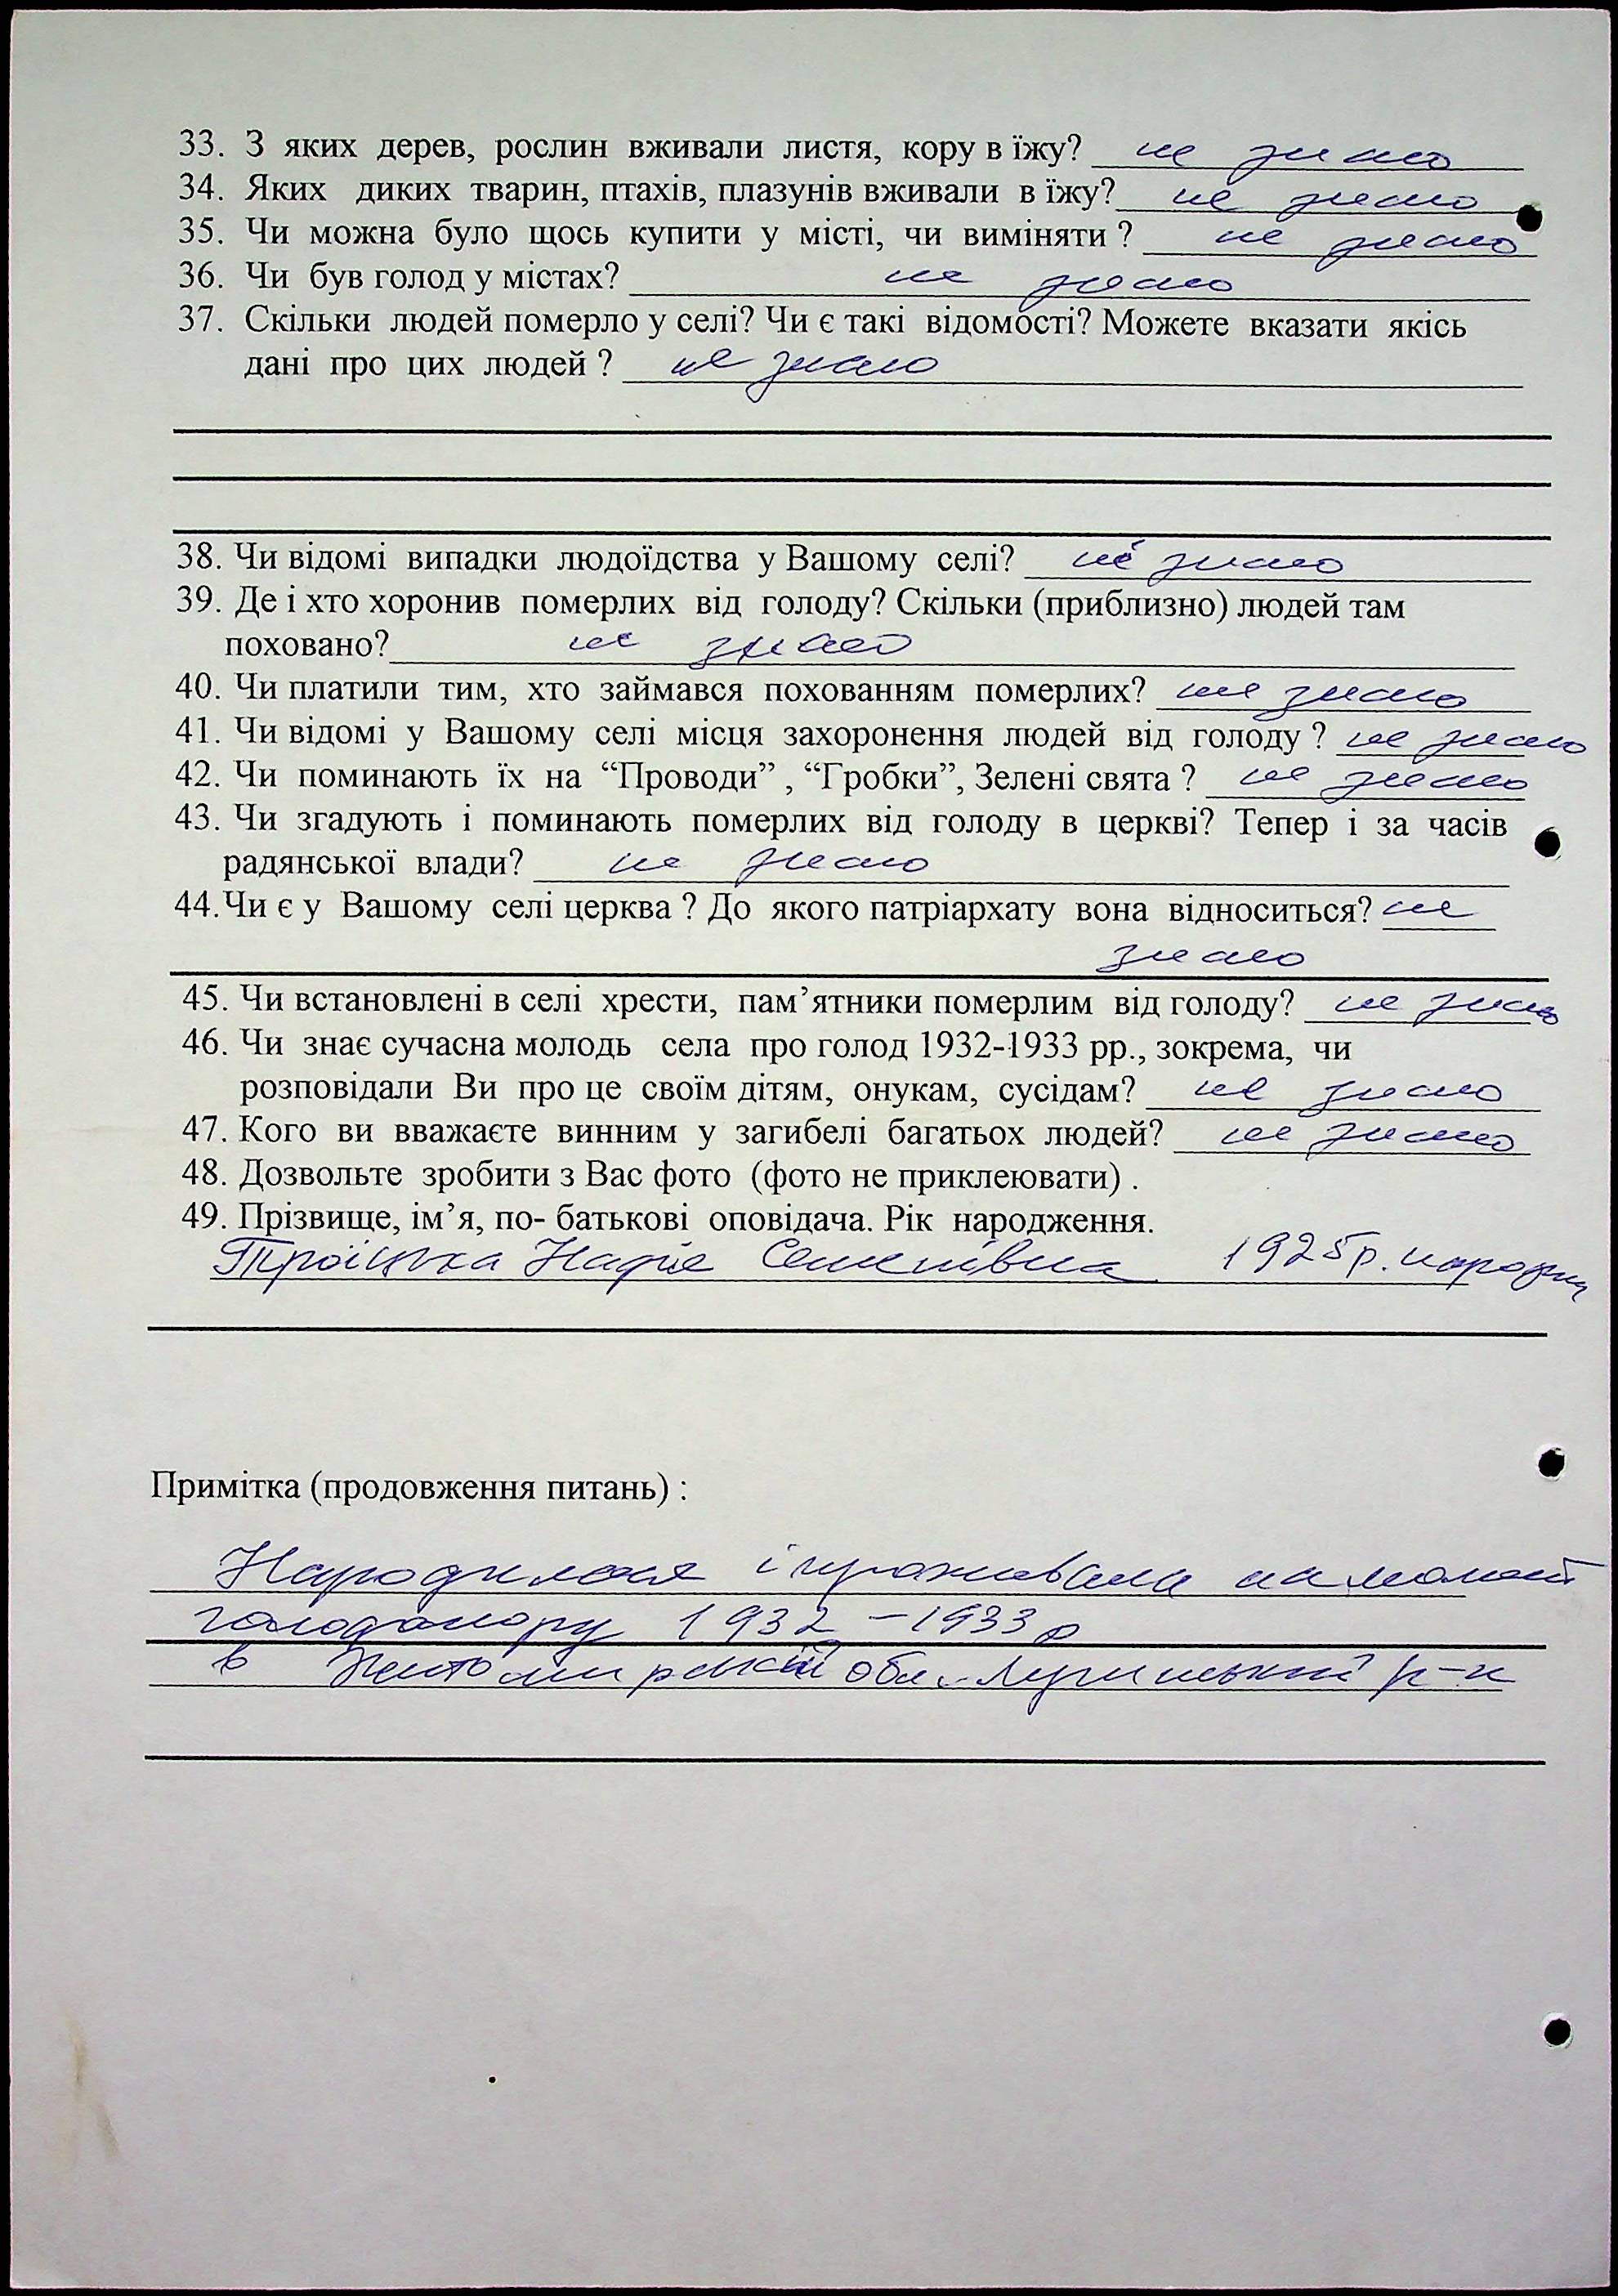 33. З яких дерев, рослин вживали листя, кору в їжу? не знаю
34. Яких диких тварин, птахів, плазунів вживали в їжу? не знаю
35. Чи можна було щось купити у місті, чи виміняти ? не знаю
36. Чи був голод у містах? не знаю
37. Скільки людей померло у селі? Чи є такі відомості? Можете вказати якісь
дані про цих людей ? не знаю
38. Чи відомі випадки людоїдства у Вашому селі? не знаю
39. Де і хто хоронив померлих від голоду? Скільки (приблизно) людей там
поховано? не знаю
40. Чи платили тим, хто займався похованням померлих? не знаю
41. Чи відомі у Вашому селі місця захоронення людей від голоду ? не знаю
42. Чи поминають їх на “Проводи” , “Гробки”, Зелені свята ? не знаю
43. Чи згадують і поминають померлих від голоду в церкві? Тепер і за часів
радянської влади? не знаю
44.Чи є у Вашому селі церква ? До якого патріархату вона відноситься? не
знаю
45. Чи встановлені в селі хрести, пам’ятники померлим від голоду? не знаю
46. Чи знає сучасна молодь села про голод 1932-1933 рр., зокрема, чи
розповідали Ви про це своїм дітям, онукам, сусідам? не знаю
47. Кого ви вважаєте винним у загибелі багатьох людей? не знаю
48. Дозвольте зробити з Вас фото (фото не приклеювати) .
49. Прізвище, ім’я, по- батькові оповідача. Рік народження.
Троїцька Надія Семенівна 1925р. народж
Примітка (продовження питань) :
Народилася і проживала на момент
голодомору 1932 – 1933 р
в Житомирській обл. Лугинський р-н